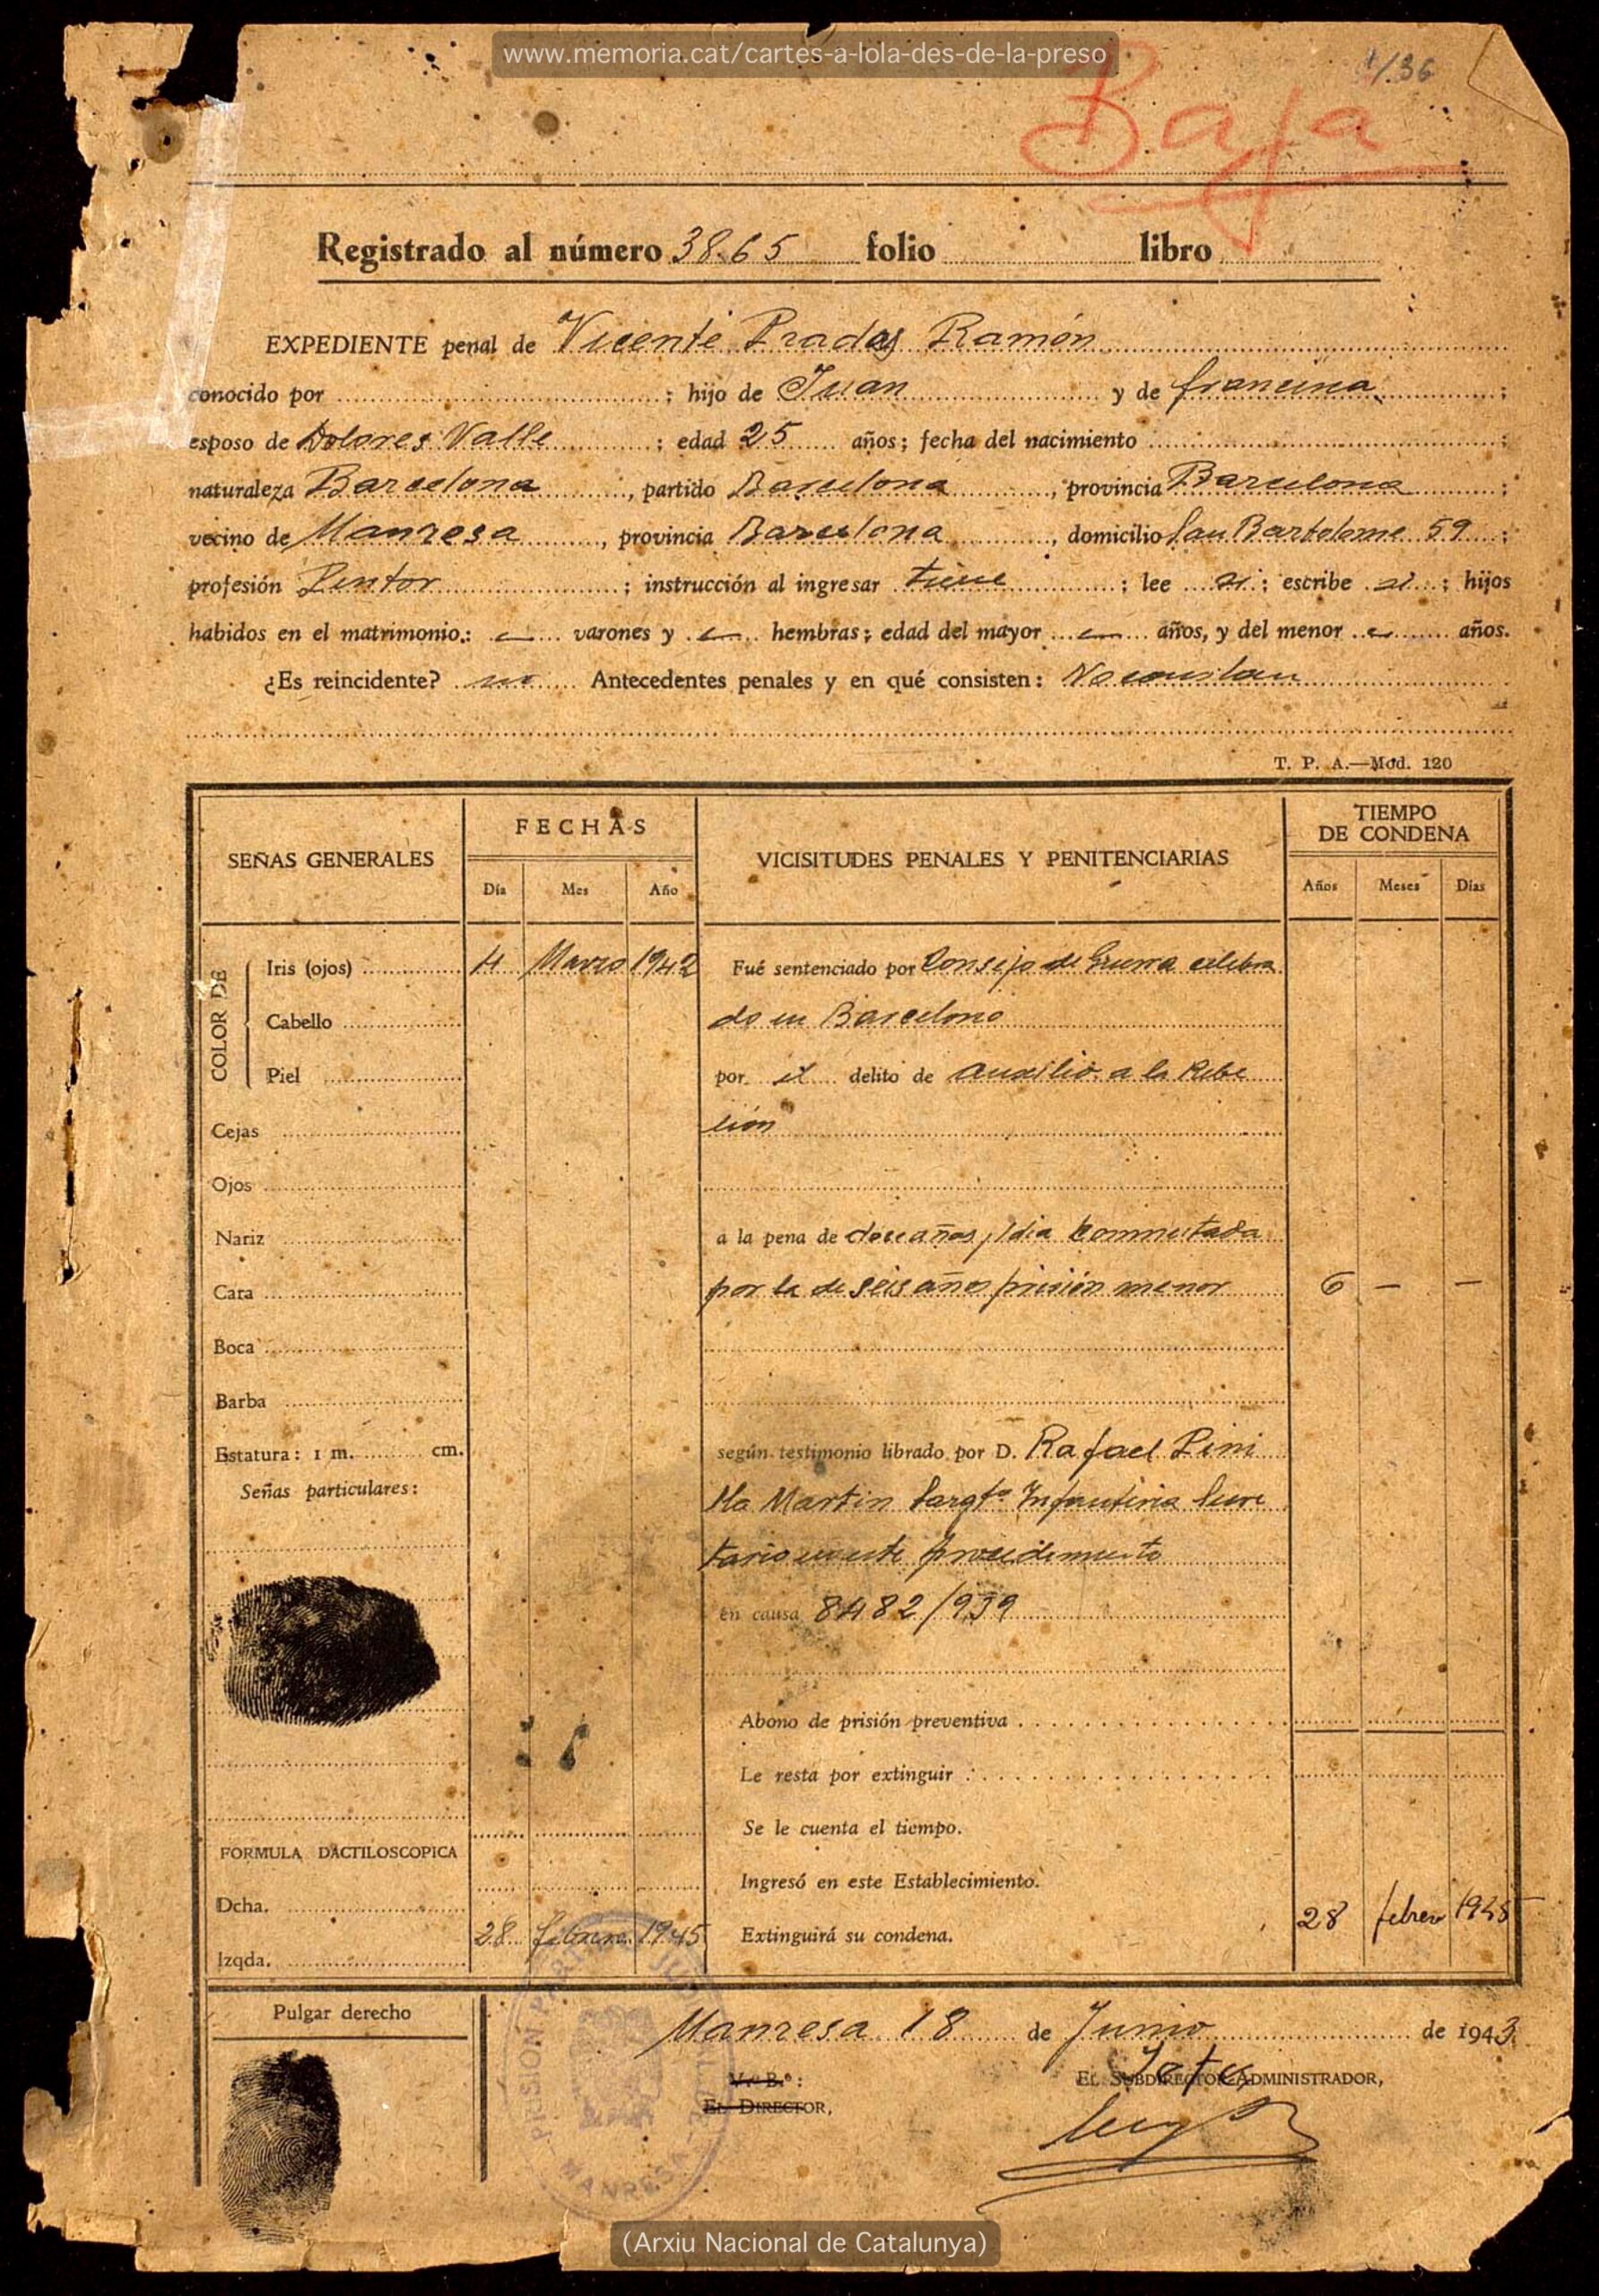 www.memoria.cat/cartes-a-lola-des-de-la-preso
1/36
Baja
Registrado al número 38.65 folio libro
EXPEDIENTE penal de Vicente Pradas Ramón
conocido por ; hijo de Juan y de francina ;
esposo de Dolores Valle ; edad 25 años; fecha del nacimiento ;
naturaleza Barcelona , partido Barcelona , provincia Barcelona ;
vecino de Manresa , provincia Barcelona , domicilio San Bartolome 59 ;
profesión Pintor ; instrucción al ingresar tiene ; lee si ; escribe si ; hijos
habidos en el matrimonio: — varones y — hembras; edad del mayor — años, y del menor — años.
¿Es reincidente? no Antecedentes penales y en qué consisten: No constan
T. P. A.—Mod. 120
SEÑAS GENERALES
FECHAS
VICISITUDES PENALES Y PENITENCIARIAS
TIEMPO
DE CONDENA
Día Mes Año
Años Meses Días
COLOR DE
Iris (ojos) 4 Marzo 1942 Fué sentenciado por Consejo de Guerra celebra
Cabello do en Barcelona
Piel por el delito de auxilio a la Rebe
Cejas lion
Ojos
Nariz a la pena de doce años y 1 dia conmutada
Cara por la de seis años prisión menor 6 — —
Boca
Barba
Estatura: 1 m. cm. según testimonio librado por D. Rafael Pini
Señas particulares: lla Martin Sargtº Infanteria Secre
tario en este procedimiento
en causa 8482/939
Abono de prisión preventiva
Le resta por extinguir
Se le cuenta el tiempo.
FORMULA DACTILOSCOPICA
Ingresó en este Establecimiento.
Dcha.
28 febrero 1945 Extinguirá su condena. 28 febrero 1945
Izqda.
Pulgar derecho
Manresa 18 de Junio de 1943
V.º B.º:
EL DIRECTOR,
EL SUBDIRECTOR-ADMINISTRADOR,
Jefe
PRISION PARTIDO JUDICIAL
MANRESA
(Arxiu Nacional de Catalunya)